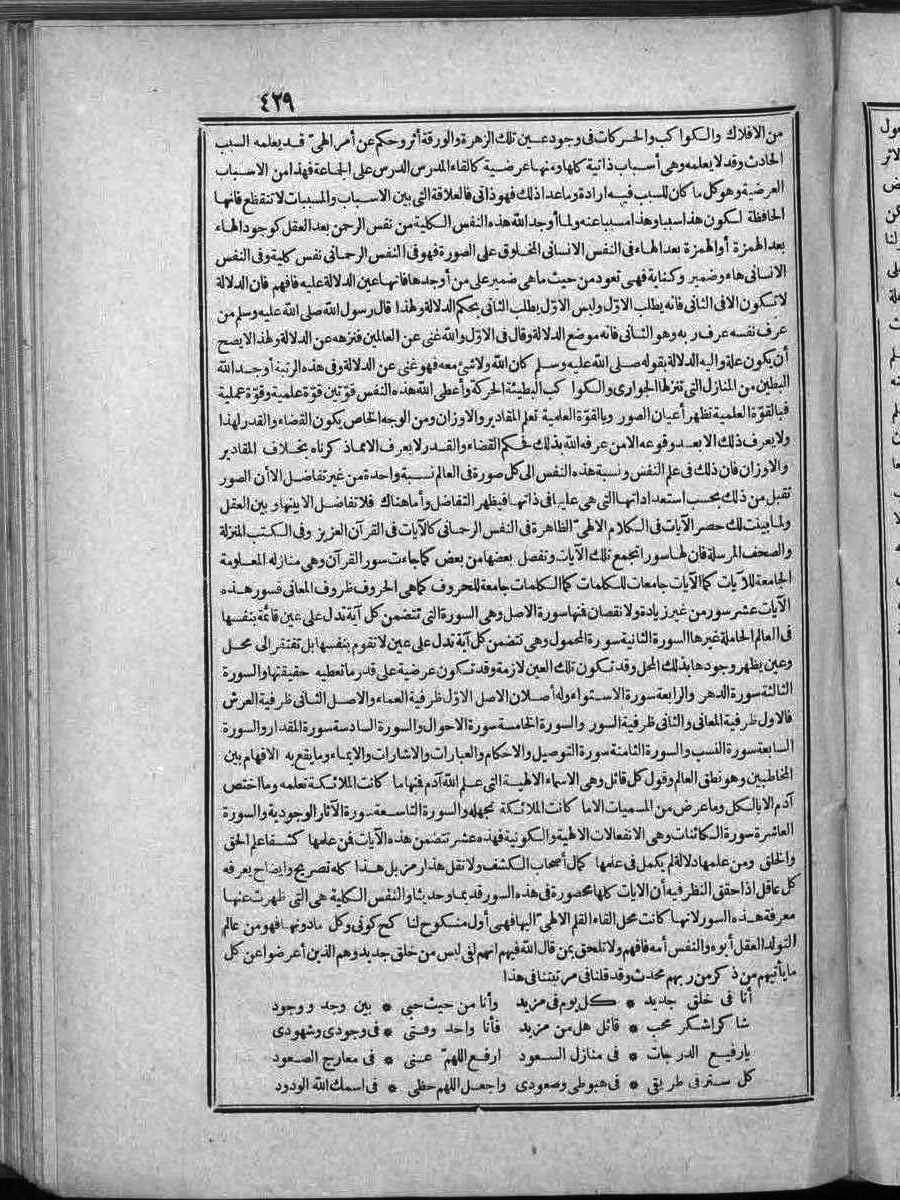 ٤٢٩
من الافلاك والكواكب والحركات فى وجود عين تلك الزهرة والورقة أثر وحكم عن أمر الهىّ قد يعلمه السبب
الحادث وقد لا يعلمه وهى أسباب ذاتية كلها ومنها عرضية كالقاء المدرس الدرس على الجماعة فهذا من الاسباب
العرضية وهو كل ما كان للسبب فيه ارادة وما عدا ذلك فهو ذاتى فالعلاقة التى بين الاسباب والمسببات لا تنقطع فانها
الحافظة لكون هذا سببا وهذا مسببا عنه ولما أوجد الله هذه النفس الكلية من نفس الرحمن بعد العقل كوجود الهاء
بعد الهمزة أو الهمزة بعد الهاء فى النفس الانسانى المخلوق على الصورة فهو فى النفس الرحمانى نفس كلية وفى النفس
الانسانى هاء وضمير وكناية فهى تعود من حيث ماهى ضمير على من أوجدها فانها عين الدلالة عليه فافهم فان الدلالة
لا تكون الا فى الثانى فانه يطلب الاوّل وليس الاوّل يطلب الثانى بحكم الدلالة ولهذا قال رسول الله صلى الله عليه وسلم من
عرف نفسه عرف ربه وهو الثانى فانه موضع الدلالة وقال فى الاوّل والله غنى عن العالمين فنزهه عن الدلالة ولهذا لا يصح
أن يكون علة واليه الدلالة بقوله صلى الله عليه وسلم كان الله ولا شئ معه فهو غنى عن الدلالة وفى هذه الرتبة أوجد الله
البطين من المنازل التى تنزلها الجوارى والكواكب البطيئة الحركة وأعطى الله هذه النفس قوّتين قوّة علمية وقوّة عملية
فبالقوّة العملية تظهر أعيان الصور وبالقوّة العلمية تعلم المقادير والاوزان ومن الوجه الخاص يكون القضاء والقدر لهذا
ولا يعرف ذلك الا بعد وقوعه الا من عرفه الله بذلك فحكم القضاء والقدر لا يعرف الا مما ذكرناه بخلاف المقادير
والاوزان فان ذلك فى علم النفس ونسبة هذه النفس الى كل صورة فى العالم نسبة واحدة من غير تفاضل الا أن الصور
تقبل من ذلك بحسب استعداداتها التى هى عليها فى ذاتها فيظهر التفاضل وأما هناك فلا تفاضل الا بينها وبين العقل
ولما بينت لك حصر الآيات فى الكلام الالهىّ الظاهرة فى النفس الرحمانى كالآيات فى القرآن العزيز وفى الكتب المنزلة
والصحف المرسلة فان لها سورا تجمع تلك الآيات وتفصل بعضها من بعض كما جاءت سور القرآن وهى منازله المعلومة
الجامعة للآيات كما الآيات جامعات للكلمات كما الكلمات جامعة للحروف كما هى الحروف ظروف المعانى فسور هذه
الآيات عشر سور من غير زيادة ولا نقصان فمنها سورة الاصل وهى السورة التى تتضمن كل آية تدل على عين قائمة بنفسها
فى العالم الحاملة غيرها السورة الثانية سورة المحمول وهى تتضمن كل آية تدل على عين لا تقوم بنفسها بل تفتقر الى محل
وعين يظهر وجودها بذلك المحل وقد تكون تلك العين لازمة وقد تكون عرضية على قدر ما تعطيه حقيقتها والسورة
الثالثة سورة الدهر والرابعة سورة الاستواء وله أصلان الاصل الاوّل ظرفية العماء والاصل الثانى ظرفية العرش
فالاول ظرفية المعانى والثانى ظرفية الصور والسورة الخامسة سورة الاحوال والسورة السادسة سورة المقدار والسورة
السابعة سورة النسب والسورة الثامنة سورة التوصيل والاحكام والعبارات والاشارات والايماء وما يقع به الافهام بين
المخاطبين وهو نطق العالم وقول كل قائل وهى الاسماء الالهية التى علم الله آدم فمنها ما كانت الملائكة تعلمه وما اختص
آدم الا بالكل وما عرض من المسميات الا ما كانت الملائكة تجهله والسورة التاسعة سورة الآثار الوجودية والسورة
العاشرة سورة الكائنات وهى الانفعالات الالهية والكونية فهذه عشر تتضمن هذه الآيات فمن علمها كشفا علم الحق
والخلق ومن علمها دلالة لم يكمل فى علمها كمال أصحاب الكشف ولا تقل هذا رمز بل هذا كله تصريح وايضاح يعرفه
كل عاقل اذا حقق النظر فيه أن الايات كلها محصورة فى هذه السور قديما وحديثا والنفس الكلية هى التى ظهرت عنها
معرفة هذه السور لانها كانت محل القاء القلم الالهىّ اليها فهى أول منكوح لنا كح كونى وكل مادونها فهو من عالم
التولد العقل أبوه والنفس أمه فافهم ولا تلحق بمن قال الله فيهم انهم لفى لبس من خلق جديد وهم الذين أعرضوا عن كل
ما يأتيهم من ذكر من ربهم محدث وقد قلنا فى مرتبتنا فى هذا
أنا فى خلق جديد * كل يوم فى مزيد وأنا من حيث حبى * بين وجد ووجود
شاكرا شكر محب * قائل هل من مزيد فأنا واحد وقتى * فى وجودى وشهودى
يارفيع الدرجات * فى منازل السعود ارفع اللهمّ عنى * فى معارج الصعود
كل ستر فى طريقى * فى هبوطى وصعودى واجعل اللهم حظى * فى اسمك الله الودود